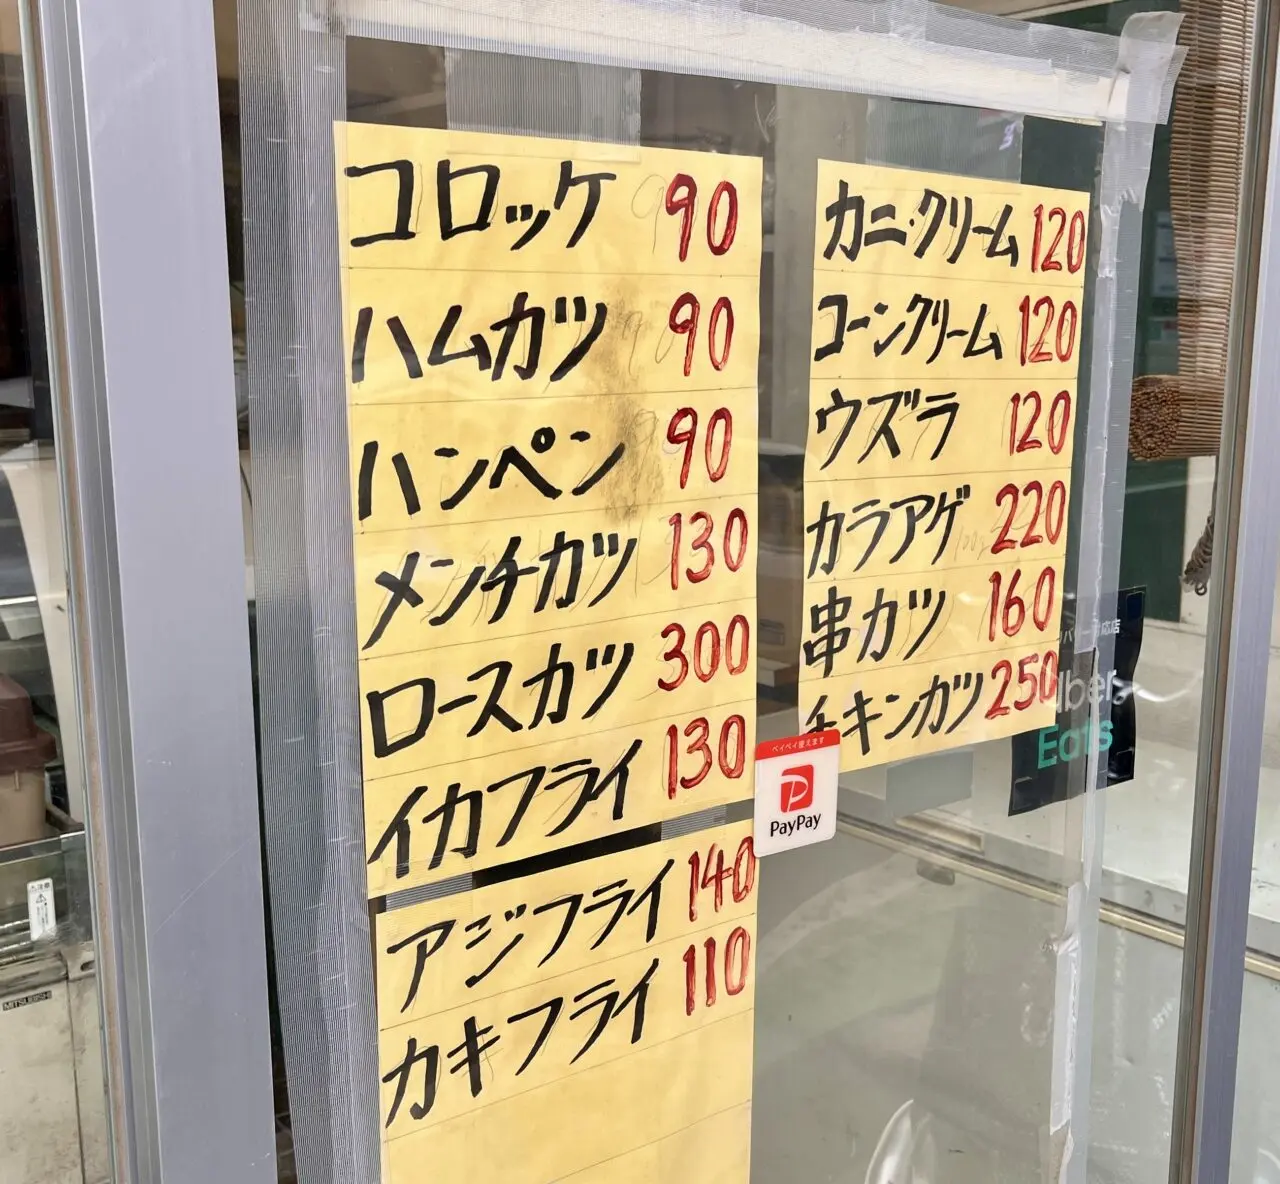 コロッケ 90
ハムカツ 90
ハンペン 90
メンチカツ 130
ロースカツ 300
イカフライ 130
アジフライ 140
カキフライ 110
カニ・クリーム 120
コーンクリーム 120
ウズラ 120
カラアゲ 220
串カツ 160
チキンカツ 250
ペイペイ使えます
PayPay
応店
Uber
Eats
MITSUBISHI